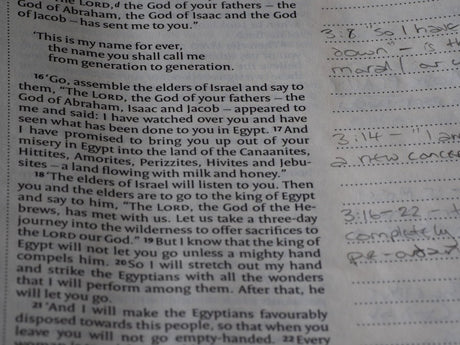 The LORD,d the God of your fathers – the
God of Abraham, the God of Isaac and the God
of Jacob – has sent me to you."
'This is my name for ever,
the name you shall call me
from generation to generation.
16 'Go, assemble the elders of Israel and say to
them, "The LORD, the God of your fathers – the
God of Abraham, Isaac and Jacob – appeared to
me and said: I have watched over you and have
seen what has been done to you in Egypt. 17 And
I have promised to bring you up out of your
misery in Egypt into the land of the Canaanites,
Hittites, Amorites, Perizzites, Hivites and Jebu-
sites – a land flowing with milk and honey."
18 'The elders of Israel will listen to you. Then
you and the elders are to go to the king of Egypt
and say to him, "The LORD, the God of the He-
brews, has met with us. Let us take a three-day
journey into the wilderness to offer sacrifices to
the LORD our God." 19 But I know that the king of
Egypt will not let you go unless a mighty hand
compels him. 20 So I will stretch out my hand
and strike the Egyptians with all the wonders
that I will perform among them. After that, he
will let you go.
21 'And I will make the Egyptians favourably
disposed towards this people, so that when you
leave you will not go empty-handed. 22 Every
3:8 So I have
down" – is th
moral / or
3:14 – "I am
a new conce
3:16-22 – t
completely